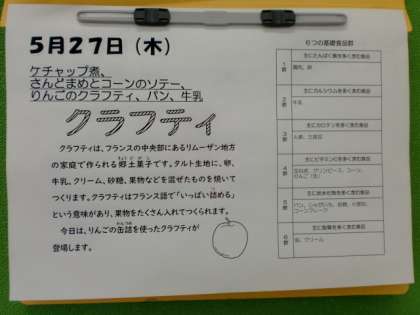 5月27日（木）
ケチャップ煮、
さんどまめとコーンのソテー、
りんごのクラフティ、パン、牛乳
クラフティ
クラフティは、フランスの中央部にあるリムーザン地方
の家庭で作られる郷土菓子です。タルト生地に、卵、
牛乳、クリーム、砂糖、果物などを混ぜたものを焼いて
つくります。クラフティはフランス語で「いっぱい詰める」
という意味があり、果物をたくさん入れてつくられます。
今日は、りんごの缶詰を使ったクラフティが
登場します。
6つの基礎食品群
1群
主にたんぱく質を多く含む食品
2群
主にカルシウムを多く含む食品
牛乳
3群
主にカロテンを多く含む食品
4群
主にビタミンCを多く含む食品
5群
主に炭水化物を多く含む食品
6群
主に脂質を多く含む食品